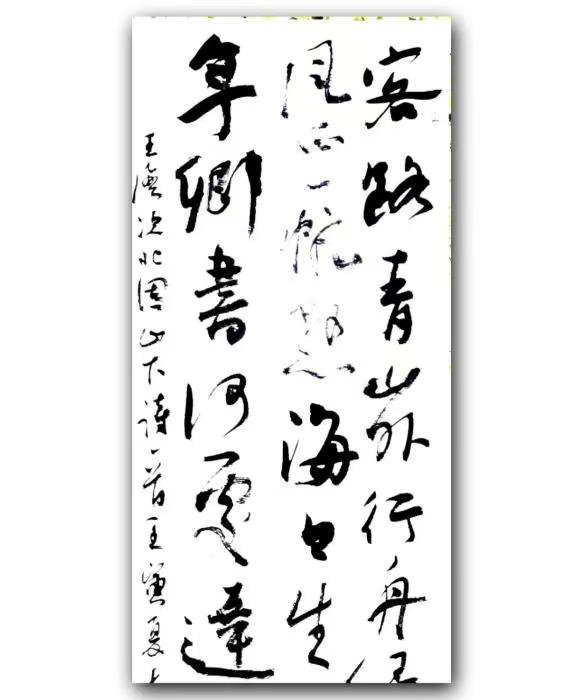 客路青山外行舟
风正一帆悬海日生
年鄉書何處達
王灣次北固山下詩一首王夏